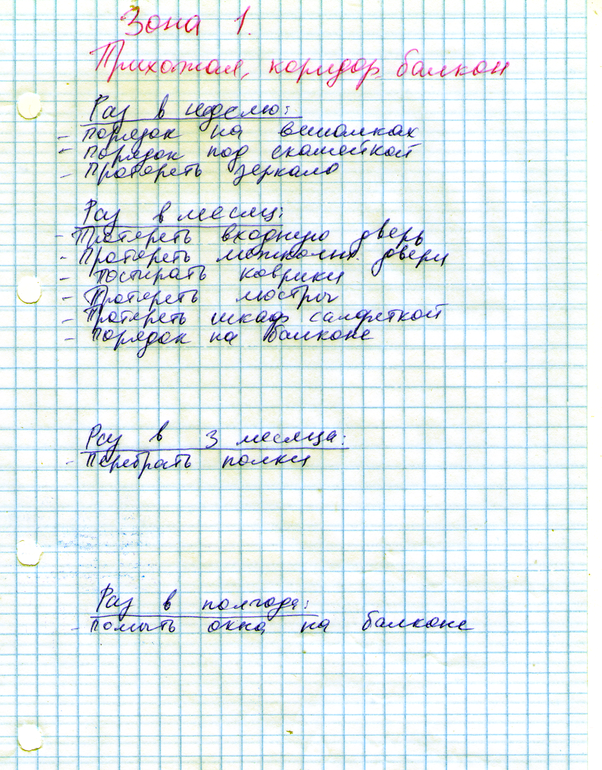 Зона 1.
Прихожая, коридор, балкон
Раз в неделю:
- Порядок на вешалках
- Порядок под скамейкой
- Протереть зеркало
Раз в месяц:
- Протереть входную дверь
- Протереть межкомн двери
- Постирать коврики
- Протереть люстры
- Протереть шкаф салфеткой
- Порядок на балконе
Раз в 3 месяца:
- Перебрать полки
Раз в полгода:
- Помыть окна на балконе